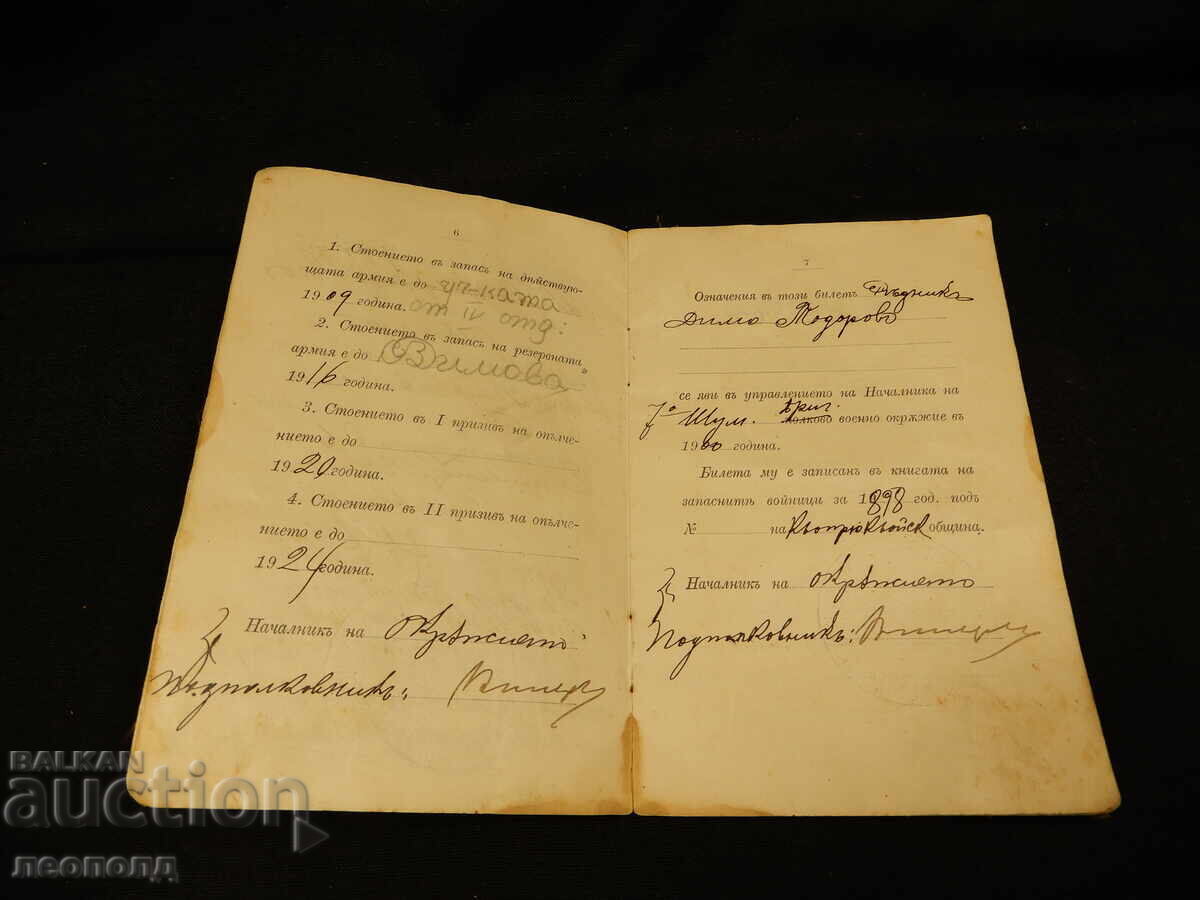 6
1. Стоението въ запасъ на дѣйствую-
щата армия е до уч-ката
1909 година. от IV отд:
2. Стоението въ запасъ на резервната
армия е до Вълмова
1916 година.
3. Стоението въ I призивъ на опълче-
нието е до
1920 година.
4. Стоението въ II призивъ на опълче-
нието е до
1924 година.
Началникъ на окръжието
Подполковникъ:
7
Означения въ този билетъ
Димо Тодоровъ
се яви въ управлението на Началника на
7о Шум. бриг. полково военно окрѫжие въ
1900 година.
Билета му е записанъ въ книгата на
запаснитѣ войници за 1898 год. подъ
№ на Кюпрюкьойск община.
Началникъ на окръжието
Подполковникъ:
BALKAN
auction
леополд